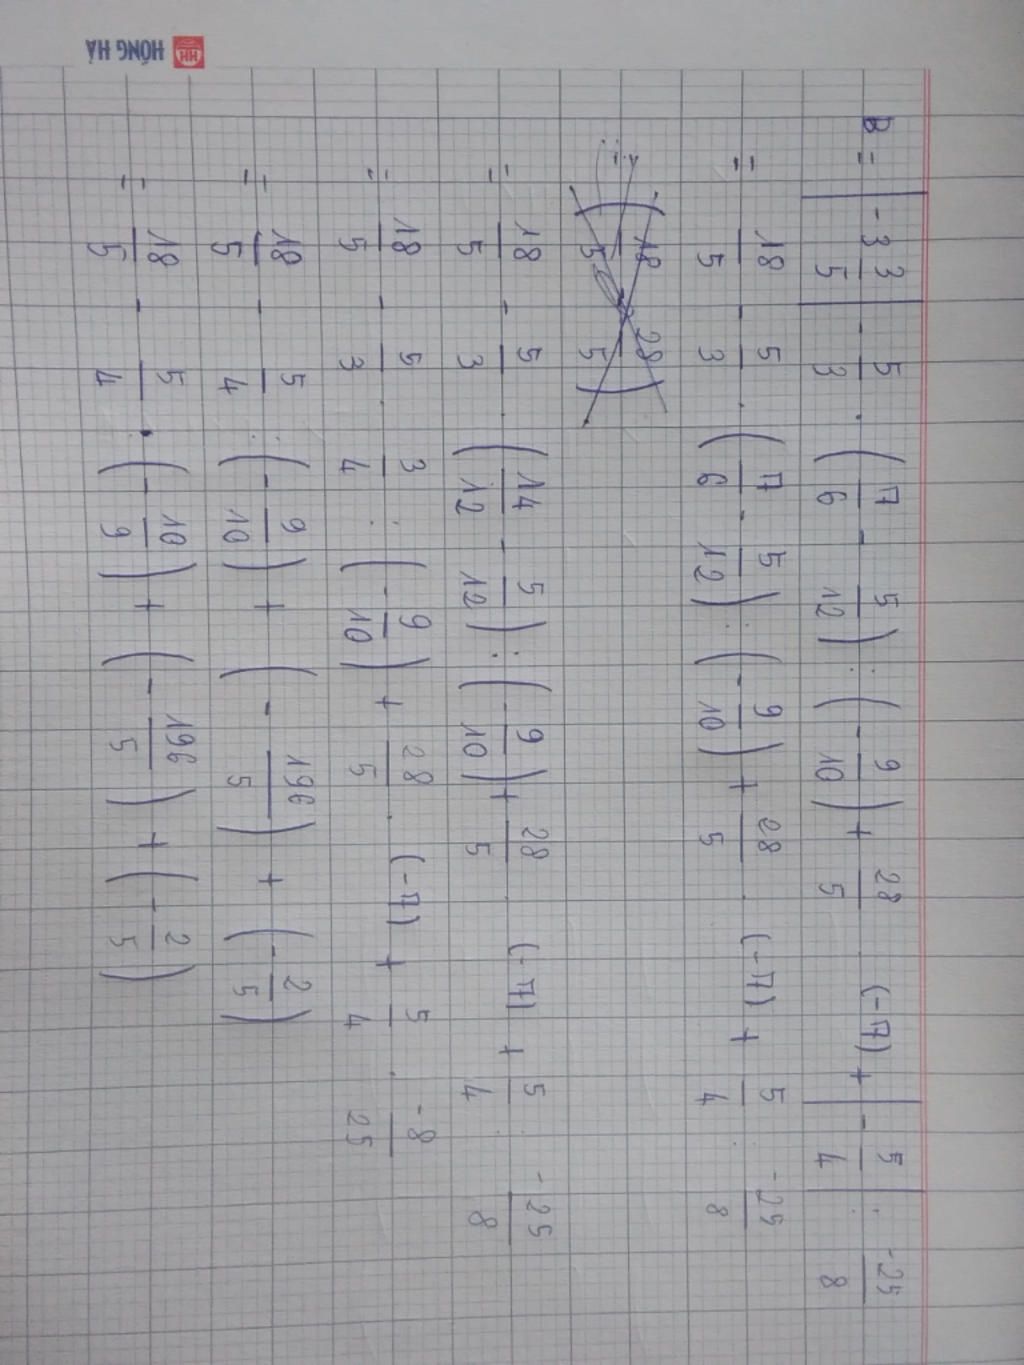 HH HỒNG HÀ
B = |-3 3/5| - 5/3 . (7/6 - 5/12) : (-9/10) + 28/5 (-7) + |-5/4| : -25/8
= 18/5 - 5/3 . (7/6 - 5/12) : (-9/10) + 28/5 . (-7) + 5/4 : -25/8
= (18/5 28/5)
= 18/5 - 5/3 . (14/12 - 5/12) : (-9/10) + 28/5 . (-7) + 5/4 : -25/8
= 18/5 - 5/3 . 3/4 : (-9/10) + 28/5 . (-7) + 5/4 . -8/25
= 18/5 - 5/4 : (-9/10) + (-196/5) + (-2/5)
= 18/5 - 5/4 . (-10/9) + (-196/5) + (-2/5)